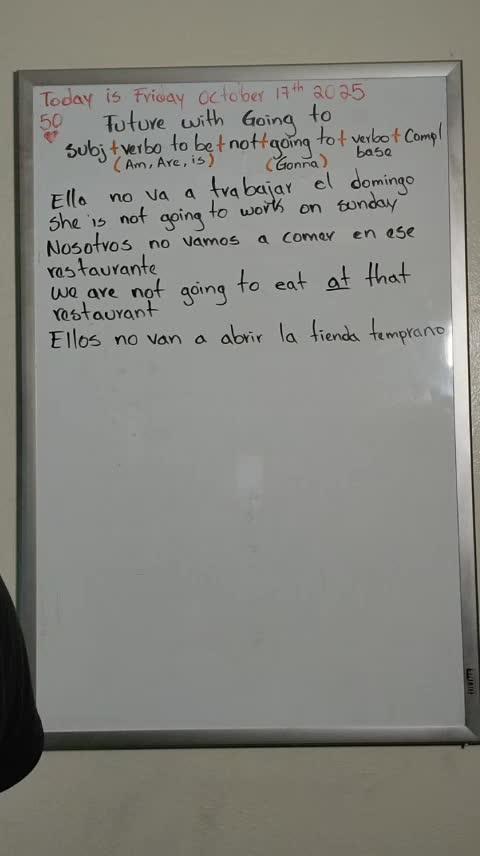 Today is Friday October 17th 2025
50 Future with Going to
Subj + verbo to be + not + going to + verbo + Compl
(Am, Are, is) (Gonna) base
Ella no va a trabajar el domingo
She is not going to work on sunday
Nosotros no vamos a comer en ese
restaurante
We are not going to eat at that
restaurant
Ellos no van a abrir la tienda temprano